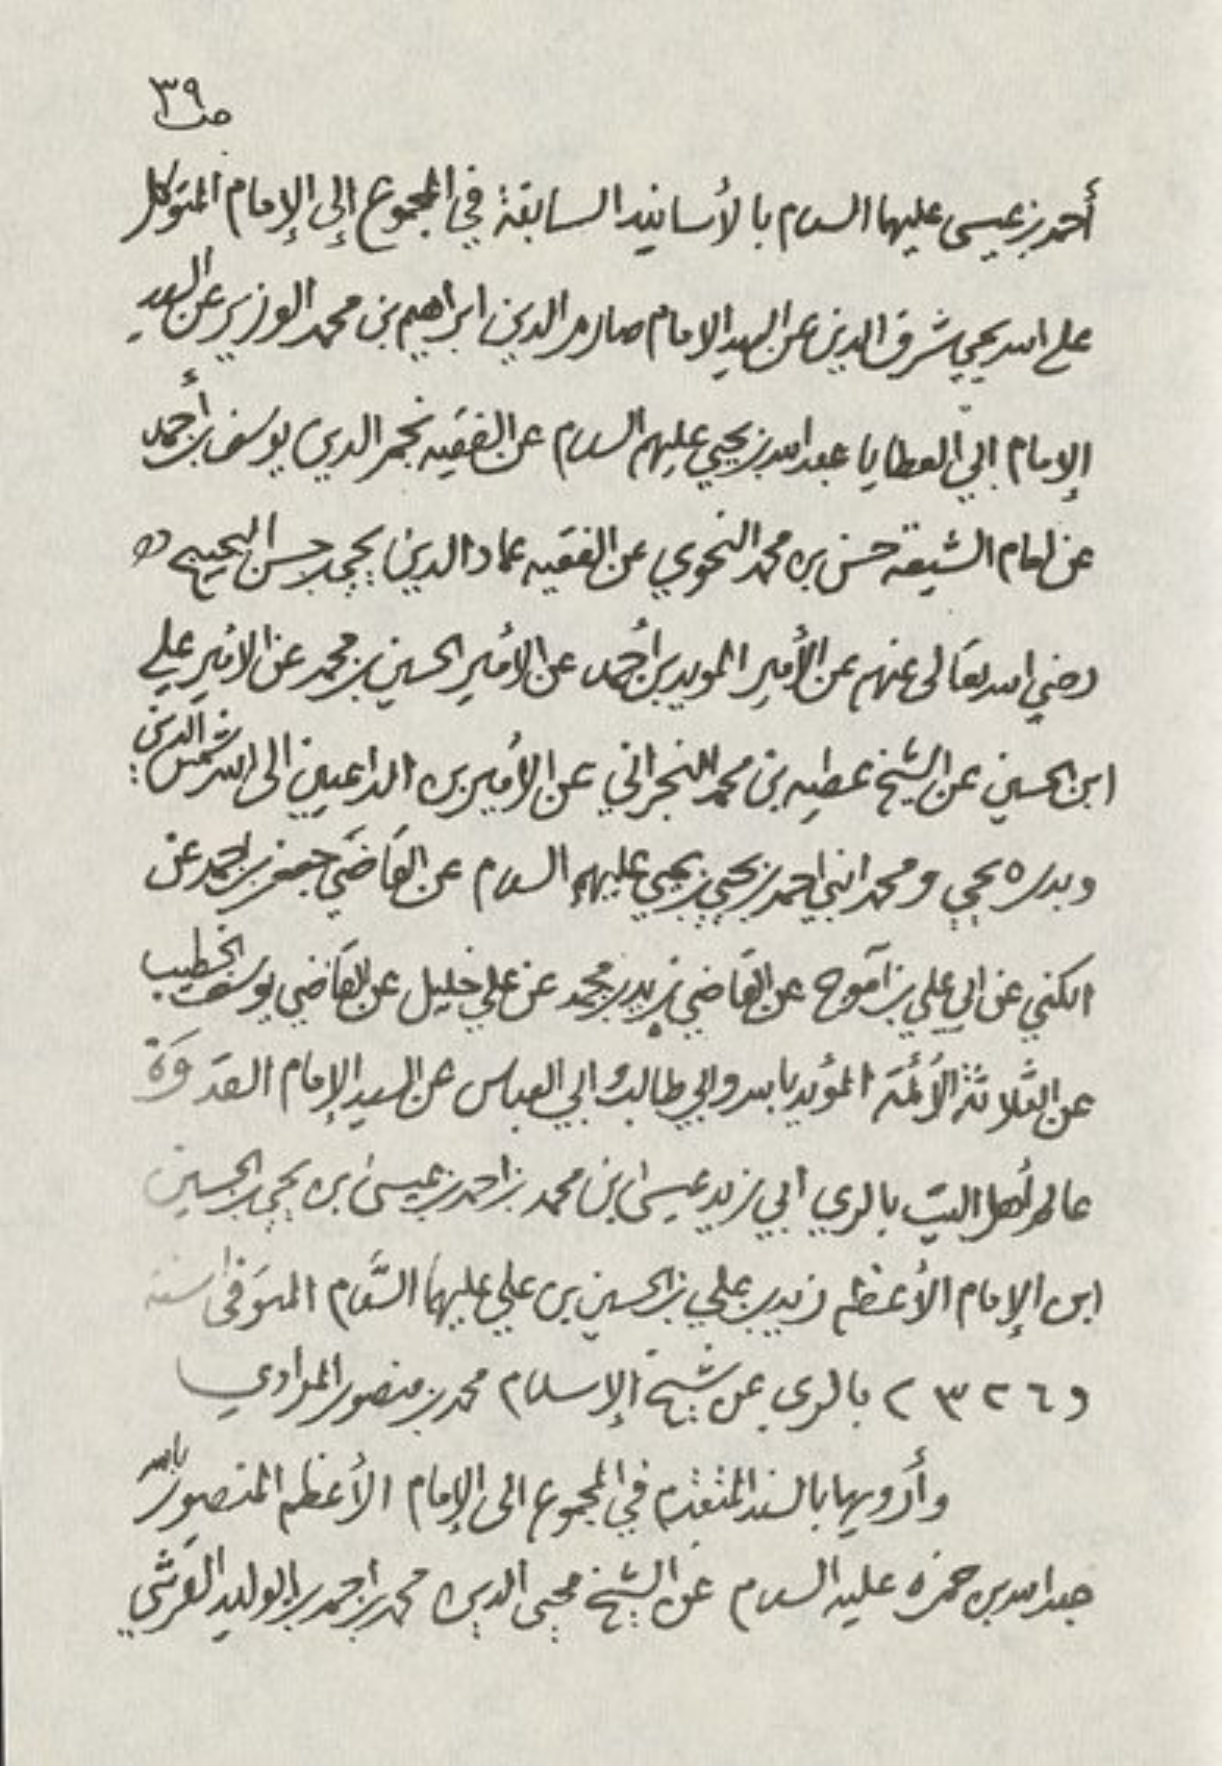 ص ٣٩
أحمد بن عيسى عليهما السلام بالأسانيد السابقة في المجموع إلى الإمام المتوكل
على الله يحيى شرف الدين عن السيد الامام صارم الدين ابراهيم بن محمد الوزير عن السيد
الإمام ابي العطايا عبدالله بن يحيى عليهم السلام عن الفقيه نجم الدين يوسف بن أحمد
عن امام الشيعة حسن بن محمد النحوي عن الفقيه عماد الدين يحيى بن حسن البحيبح
رضي الله تعالى عنهم عن الأمير المويد بن أحمد عن الأمير الحسين بن محمد عن الأمير علي
ابن الحسين عن الشيخ عطيه بن محمد النجراني عن الأميرين الداعيين الى الله شمس الدين
وبدره يحيى ومحمد ابني احمد بن يحيى بن يحيى عليهم السلام عن القاضي جعفر بن احمد عن
الكني عن ابي علي بن آموج عن القاضي زيد بن محمد عن علي خليل عن القاضي يوسف الخطيب
عن الثلاثة الأئمة المؤيد بالله وابي طالب وابي العباس عن السيد الإمام القدوة
عالم أهل البيت بالري ابي زيد عيسى ابن محمد بن احمد بن عيسى بن يحيى بن الحسين
ابن الإمام الأعظم زيد بن علي بن الحسين بن علي عليهما السلام المتوفى سنة
و٣٢٦ بالري عن شيخ الإسلام محمد بن منصور المرادي
وأرويها بالسند المتقدم في المجموع الى الإمام الأعظم المنصور بالله
عبدالله بن حمزه عليه السلام عن الشيخ محيى الدين محمد بن احمد بن الوليد القرشي